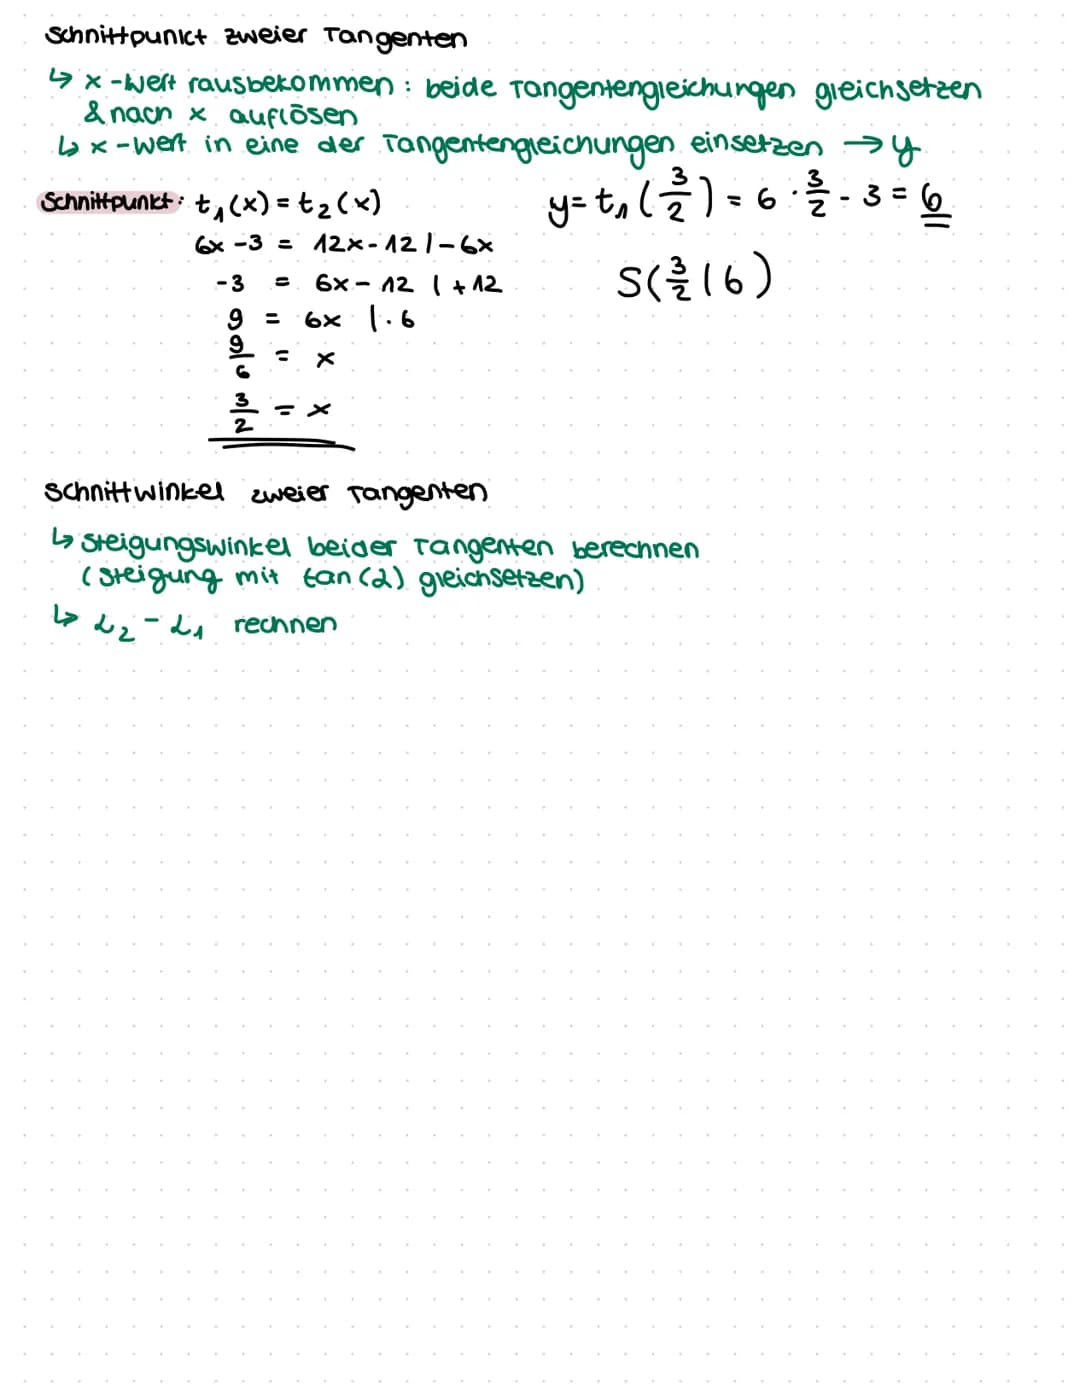 Schnittpunkt zweier Tangenten
↳ x-Wert rausbekommen: beide Tangentengleichungen gleichsetzen
& nach x auflösen
↳ x-Wert in eine der Tangentengleichungen einsetzen → y
Schnittpunkt: t₁(x) = t₂(x)
6x - 3 = 12x - 12 | - 6x
-3 = 6x - 12 | + 12
9 = 6x | · 6
9/6 = x
3/2 = x
y = t₁(3/2) = 6 · 3/2 - 3 = 6
S(3/2 | 6)
Schnittwinkel zweier Tangenten
↳ Steigungswinkel beider Tangenten berechnen
(Steigung mit tan(α) gleichsetzen)
↳ α₂ - α₁ rechnen